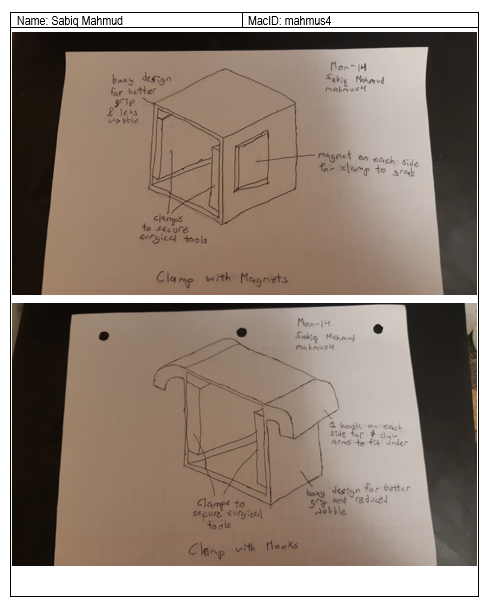 Name: Sabiq Mahmud
MacID: mahmus4
Mon-14
Sabiq Mahmud
mahmus4
boxy design
for better
grip
& less
wobble
magnet on each side
for clamp to grab
clamps
to secure
surgical tools
Clamp with Magnets
Mon-14
Sabiq Mahmud
mahmus4
hooks on each
side for
to fit under
Clamps to
secure surgical
tools
boxy design for better
grip and reduced
wobble
Clamp with Hooks